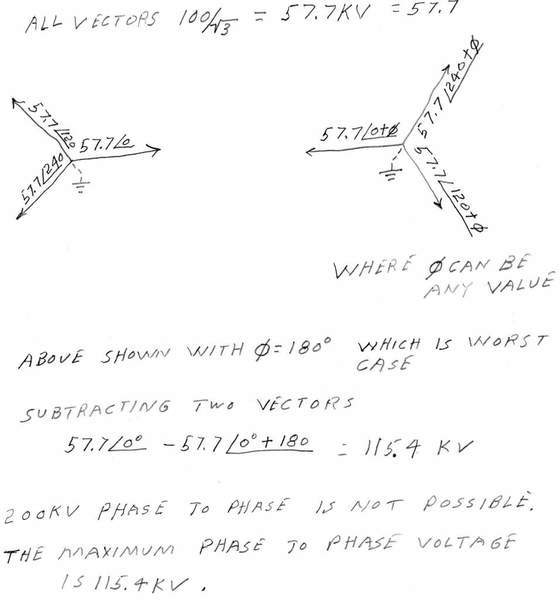 ALL VECTORS 100/√3 = 57.7KV = 57.7
57.7∠120
57.7∠0
57.7∠240
57.7∠240+ϕ
57.7∠0+ϕ
57.7∠120+ϕ
WHERE ϕ CAN BE
ANY VALUE
ABOVE SHOWN WITH ϕ=180° WHICH IS WORST
CASE
SUBTRACTING TWO VECTORS
57.7∠0° - 57.7∠0°+180 = 115.4 KV
200KV PHASE TO PHASE IS NOT POSSIBLE.
THE MAXIMUM PHASE TO PHASE VOLTAGE
IS 115.4KV.